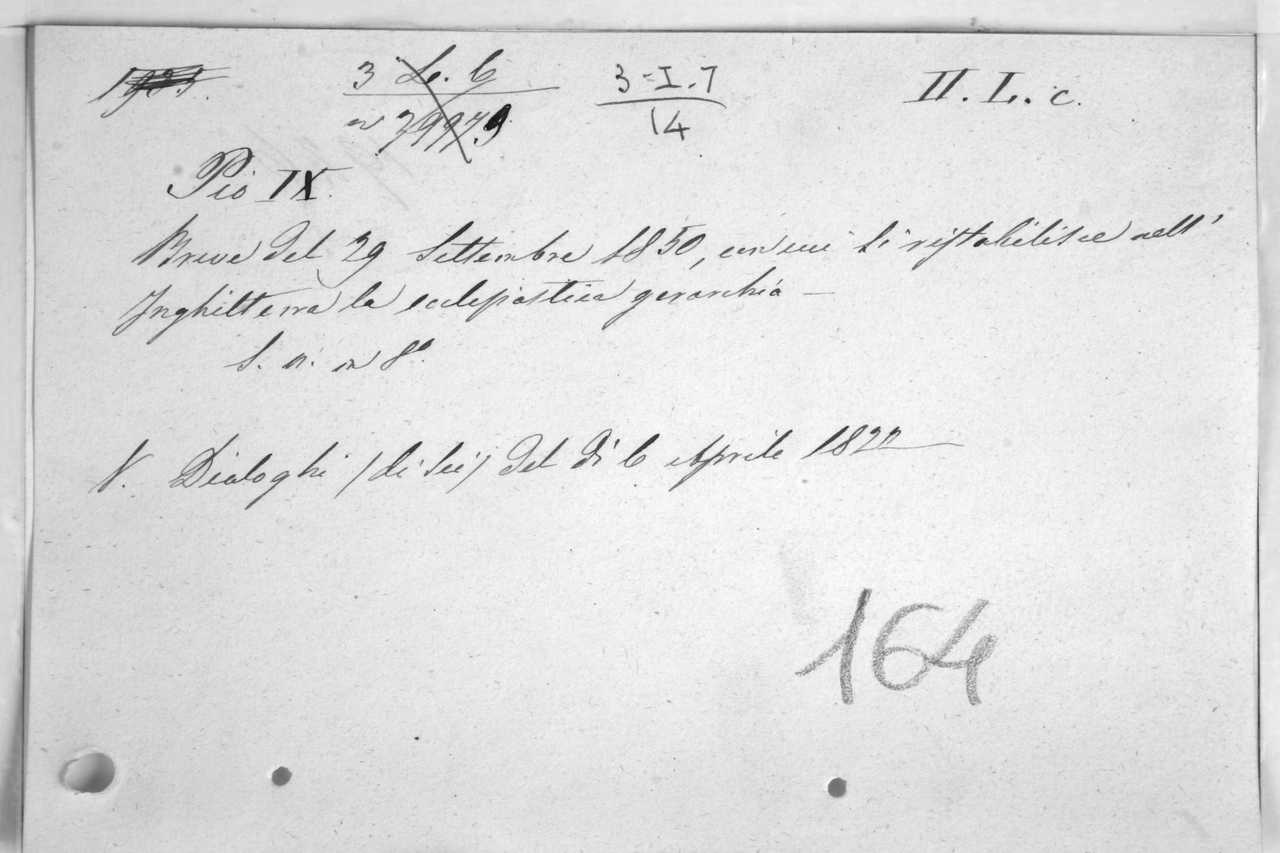 3 L. 6 3=I.7 II. L. c.
14
Pio IX.
Breve del 29 Settembre 1850, con cui si ristabilisce nell'
Inghilterra la ecclesiastica gerarchia —
S. a. in 8°
V. Dialoghi (di sei) del di 6 Aprile 1822
164